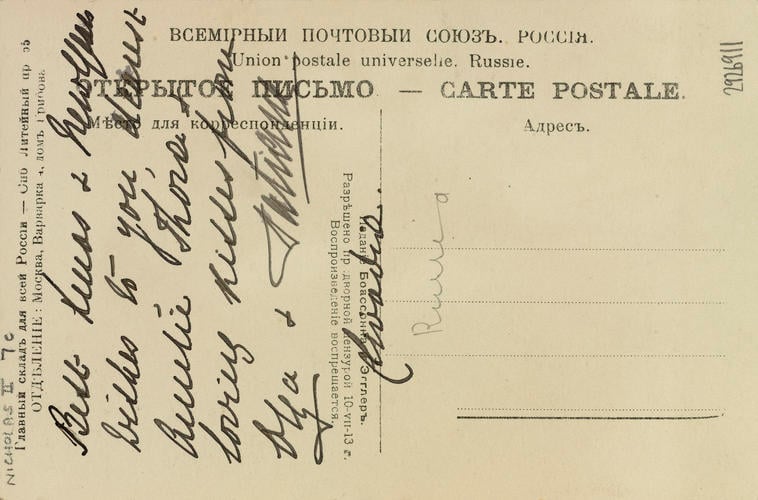 ВСЕМІРНЫЙ ПОЧТОВЫЙ СОЮЗЪ. РОССІЯ.
Union postale universelle. Russie.
ОТКРЫТОЕ ПИСЬМО — CARTE POSTALE.
Мѣсто для корреспонденціи.
Адресъ.
2926911
Best Xmas & New Year
wishes to you dearest
Auntie Thora &
loving kisses from
Olga & Tatiana
Livadia.
Russia
Главный складъ для всей Россіи — Спб Литейный пр
ОТДѢЛЕНІЕ: Москва, Варварка, домъ Грибова.
Изданіе Боассонна и Эгглеръ.
Разрѣшено пр. дворной цензурой 10-VII-13 г.
Воспроизведеніе воспрещается.
NICHOLAS II 7c